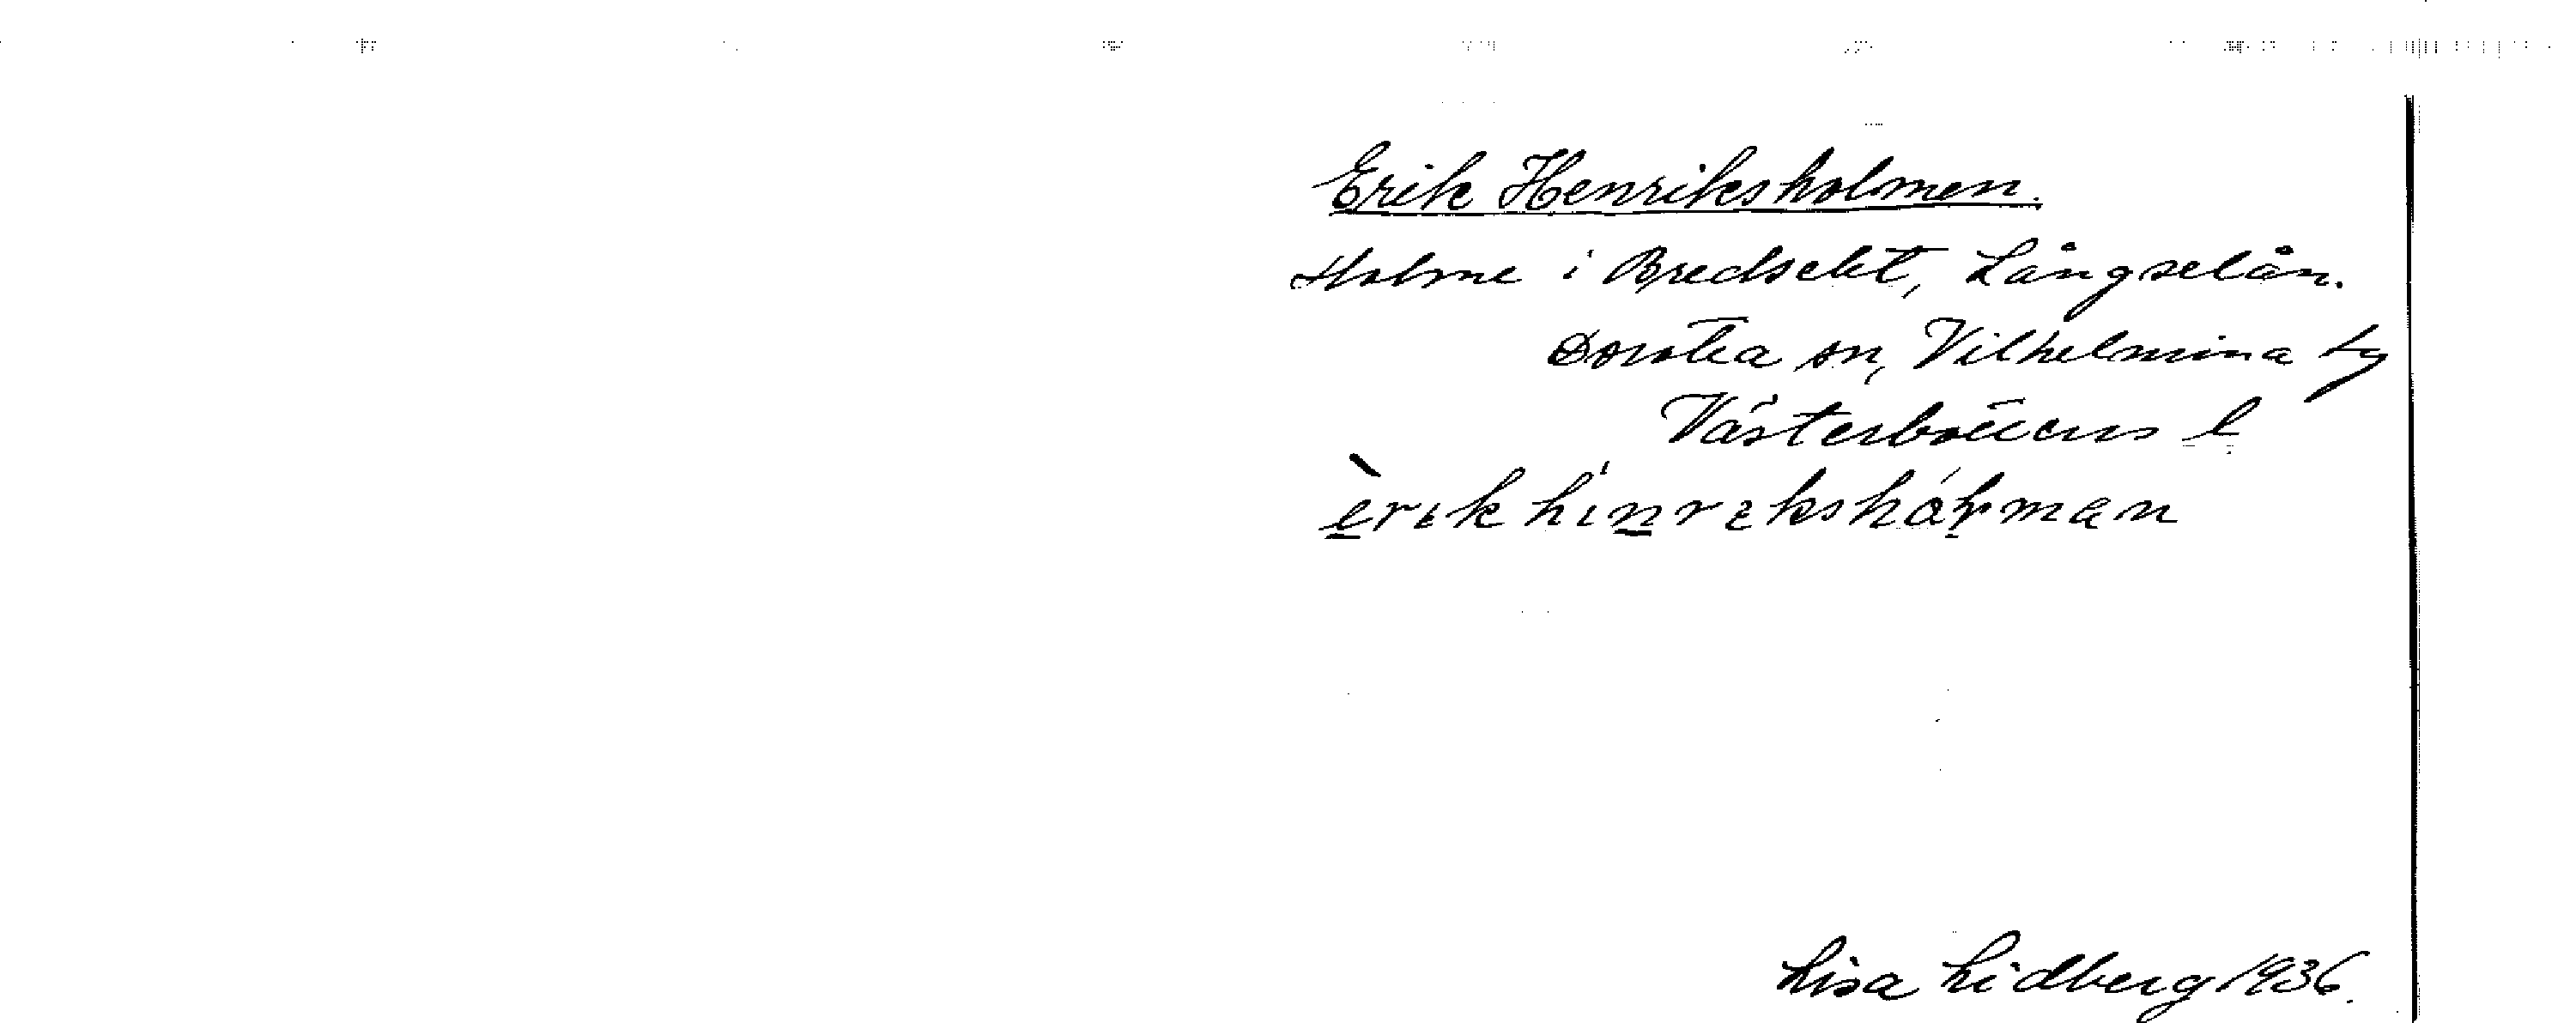 Erik Henriksholmen.
Holme i Bredselet, Långselån.
Dorotea sn, Vilhelmina tg
Västerbottens l
èrɩk hinrɩkshóḷman
Lisa Lidberg 1936.